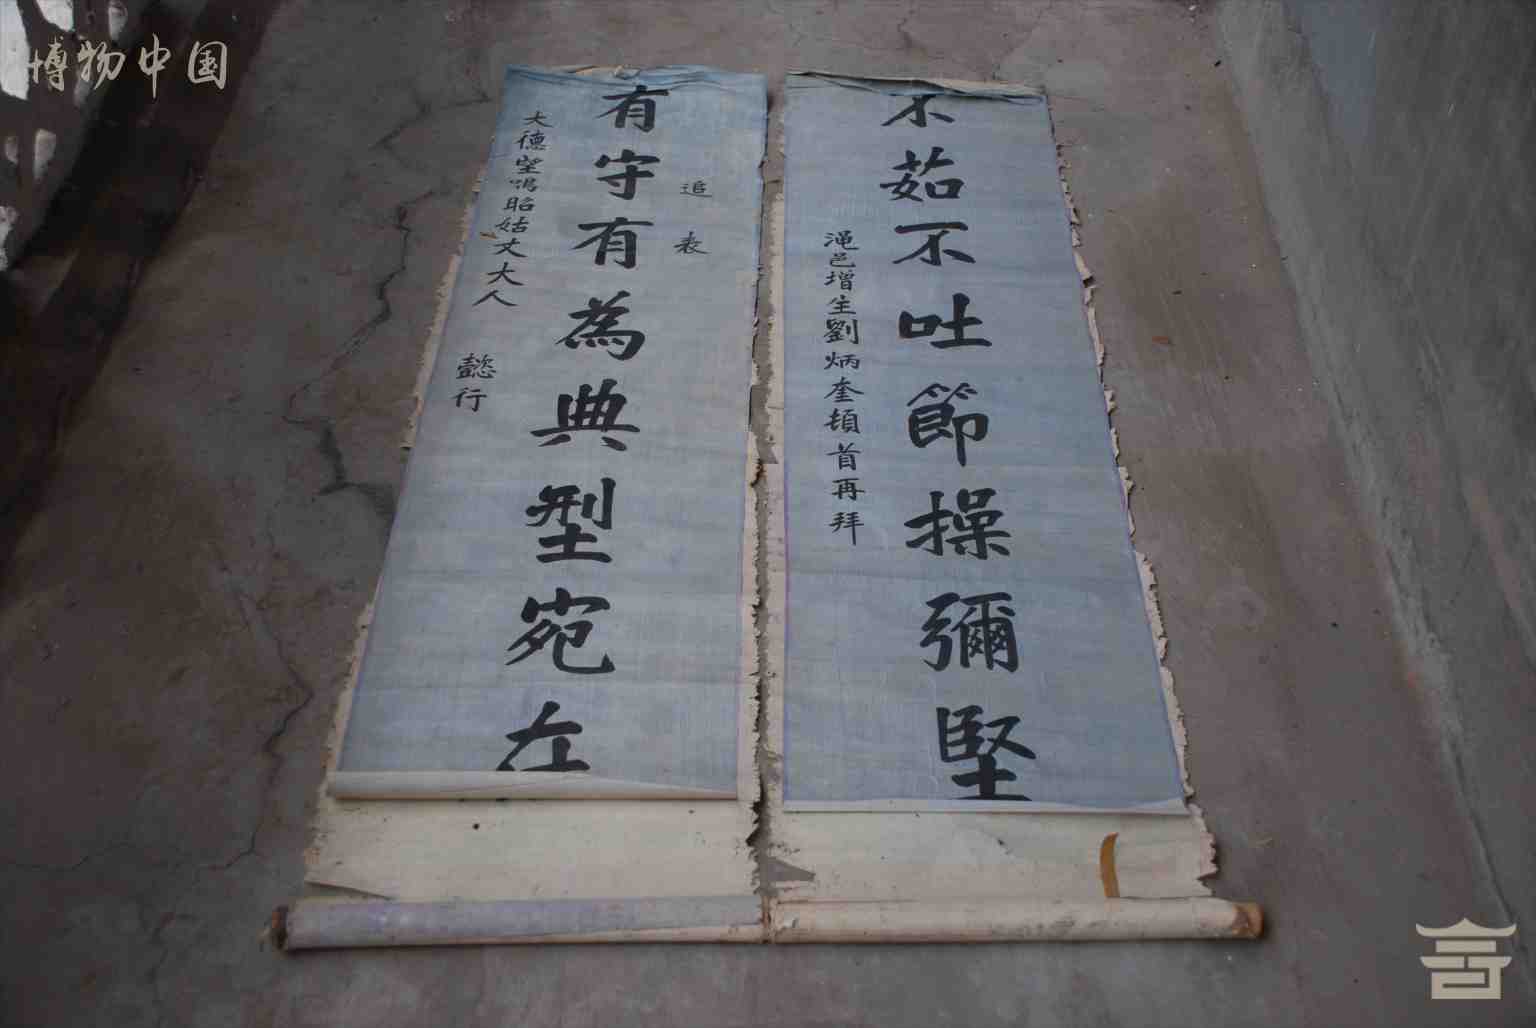 博物中国
不茹不吐節操彌堅
渑邑增生劉炳奎頓首再拜
追表
有守有為典型宛在
大德望鳴昭姑丈大人
懿行